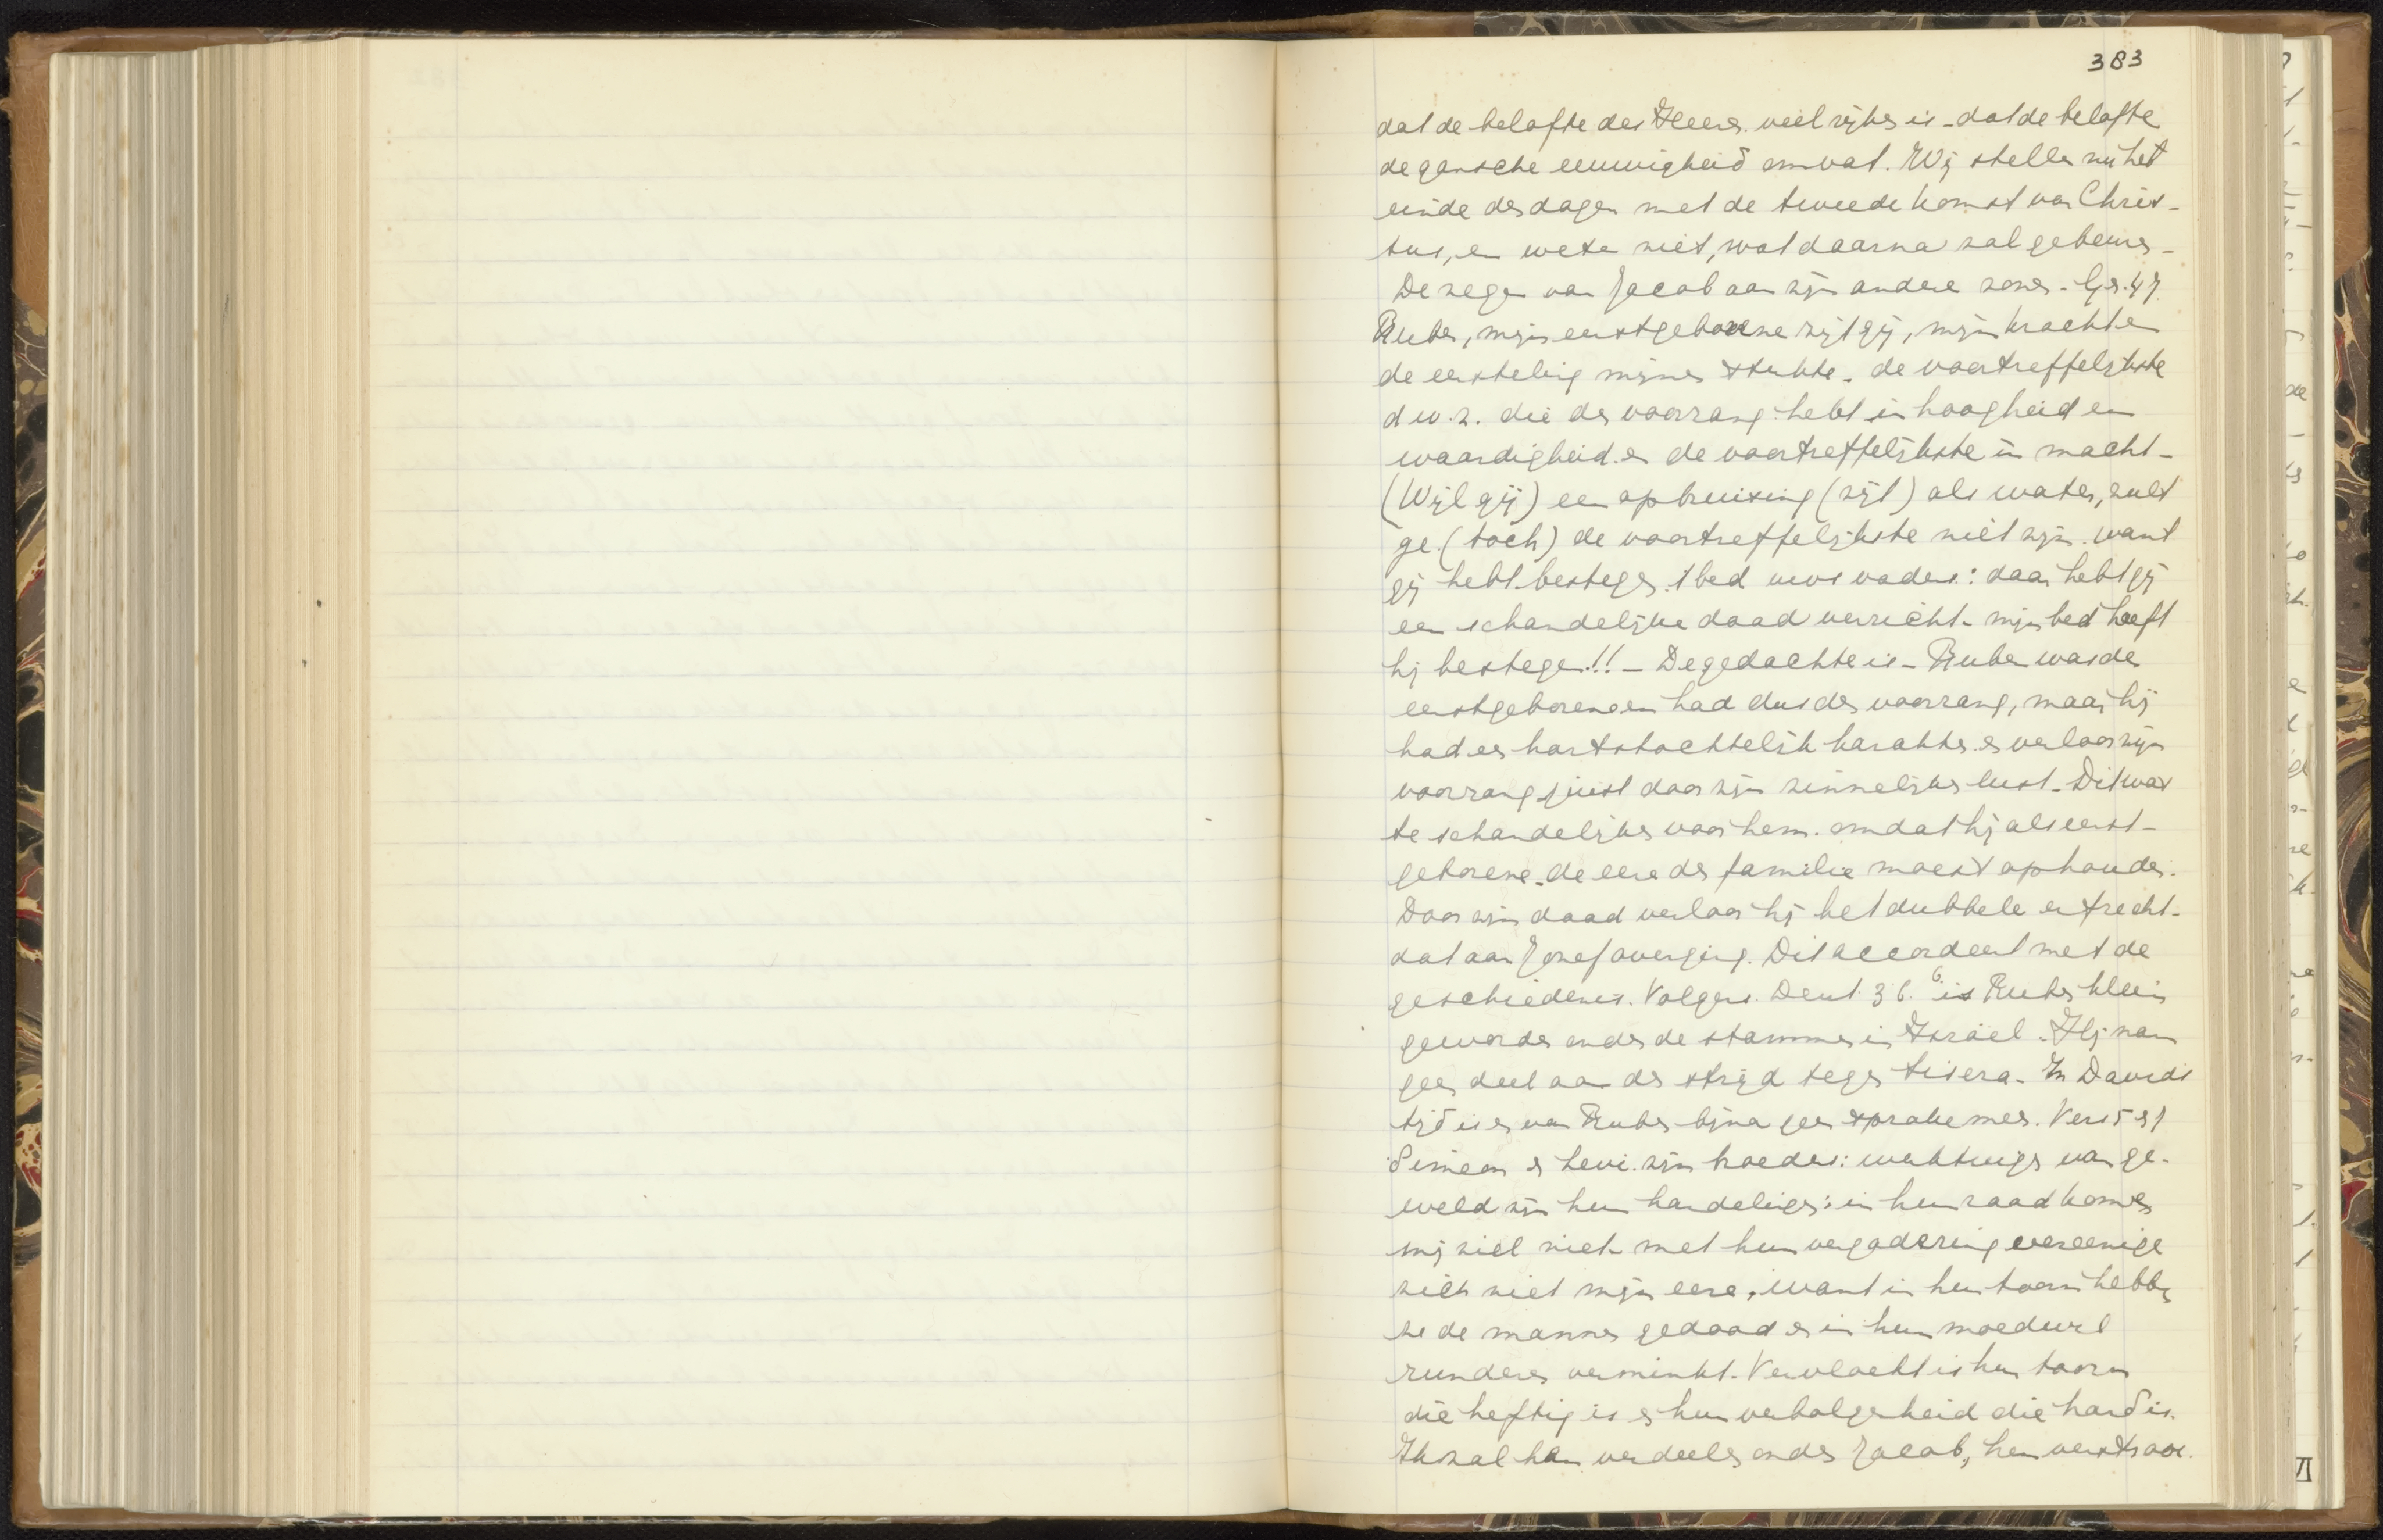 383
dat de belofte des Heeren veel rijker is - dat de belofte
de gansche eeuwigheid omvat. Wij stellen nu het
einde der dagen met de tweede komst van Chris-
tus, en weten niet, wat daarna zal gebeuren -
De zegen van Jacob aan zijn andere zonen - Gen. 49
Ruben, mijn eerstgeborene zijt gij, mijn krachten
de eersteling mijner sterkte - de voortreffelijkste
d.w.z. die den voorrang hebt in hoogheid en
waardigheid en de voortreffelijkste in macht -
(Wijl gij) een opbruising (zijt) als water, zult
ge (toch) de voortreffelijkste niet zijn want
gij hebt bestegen 't bed uws vaders: daar hebt gij
een schandelijke daad verricht - mijn bed heeft
hij bestegen!! - De gedachte is - Ruben was de
eerstgeborene en had dus den voorrang, maar hij
had een hartstochtelijk karakter en verloor zijn
voorrang juist door zijn zinnelijken lust - Dit was
te schandelijker voor hem omdat hij als eerst-
geborene de eere der familie moest ophouden.
Door zijn daad verloor hij het dubbele erfrecht -
dat aan Jozef overging. Dit accordeert met de
geschiedenis. Volgens Deut. 36.6 is Ruben klein
geworden onder de stammen in Israël. Hij nam
geen deel aan den strijd tegen Sisera - In Davids
tijd is er van Ruben bijna geen sprake meer. Vers 5 en 7
Simeon en Levi zijn broeders: werktuigen van ge-
weld zijn hun handelingen: in hun raad kome
mijn ziel niet - met hun vergadering vereenige
zich niet mijn eere, want in hun toorn hebben
ze de mannen gedood en in hun moedwil
runderen verminkt. Vervloekt is hun toorn
die heftig is en hun verbolgenheid die hard is.
Ik zal hen verdeelen onder Jacob, hen verstrooi